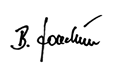 B. Joachim